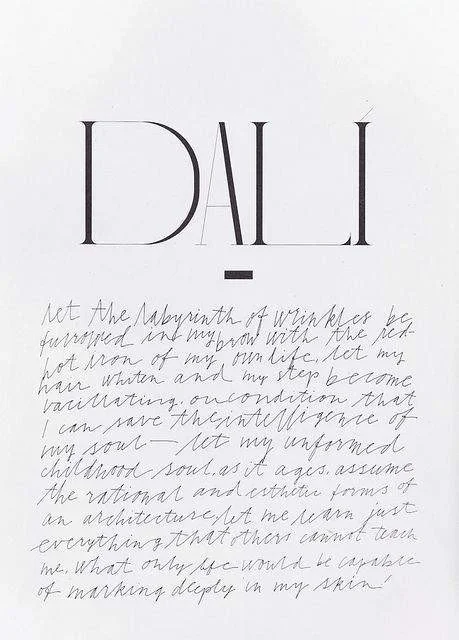 DALÍ
let the labyrinth of wrinkles be
furrowed in my brow with the red-
hot iron of my own life, let my
hair whiten and my step become
vacillating, on condition that
I can save the intelligence of
my soul — let my unformed
childhood soul, as it ages, assume
the rational and esthetic forms of
an architecture, let me learn just
everything that others cannot teach
me, what only life would be capable
of marking deeply in my skin!